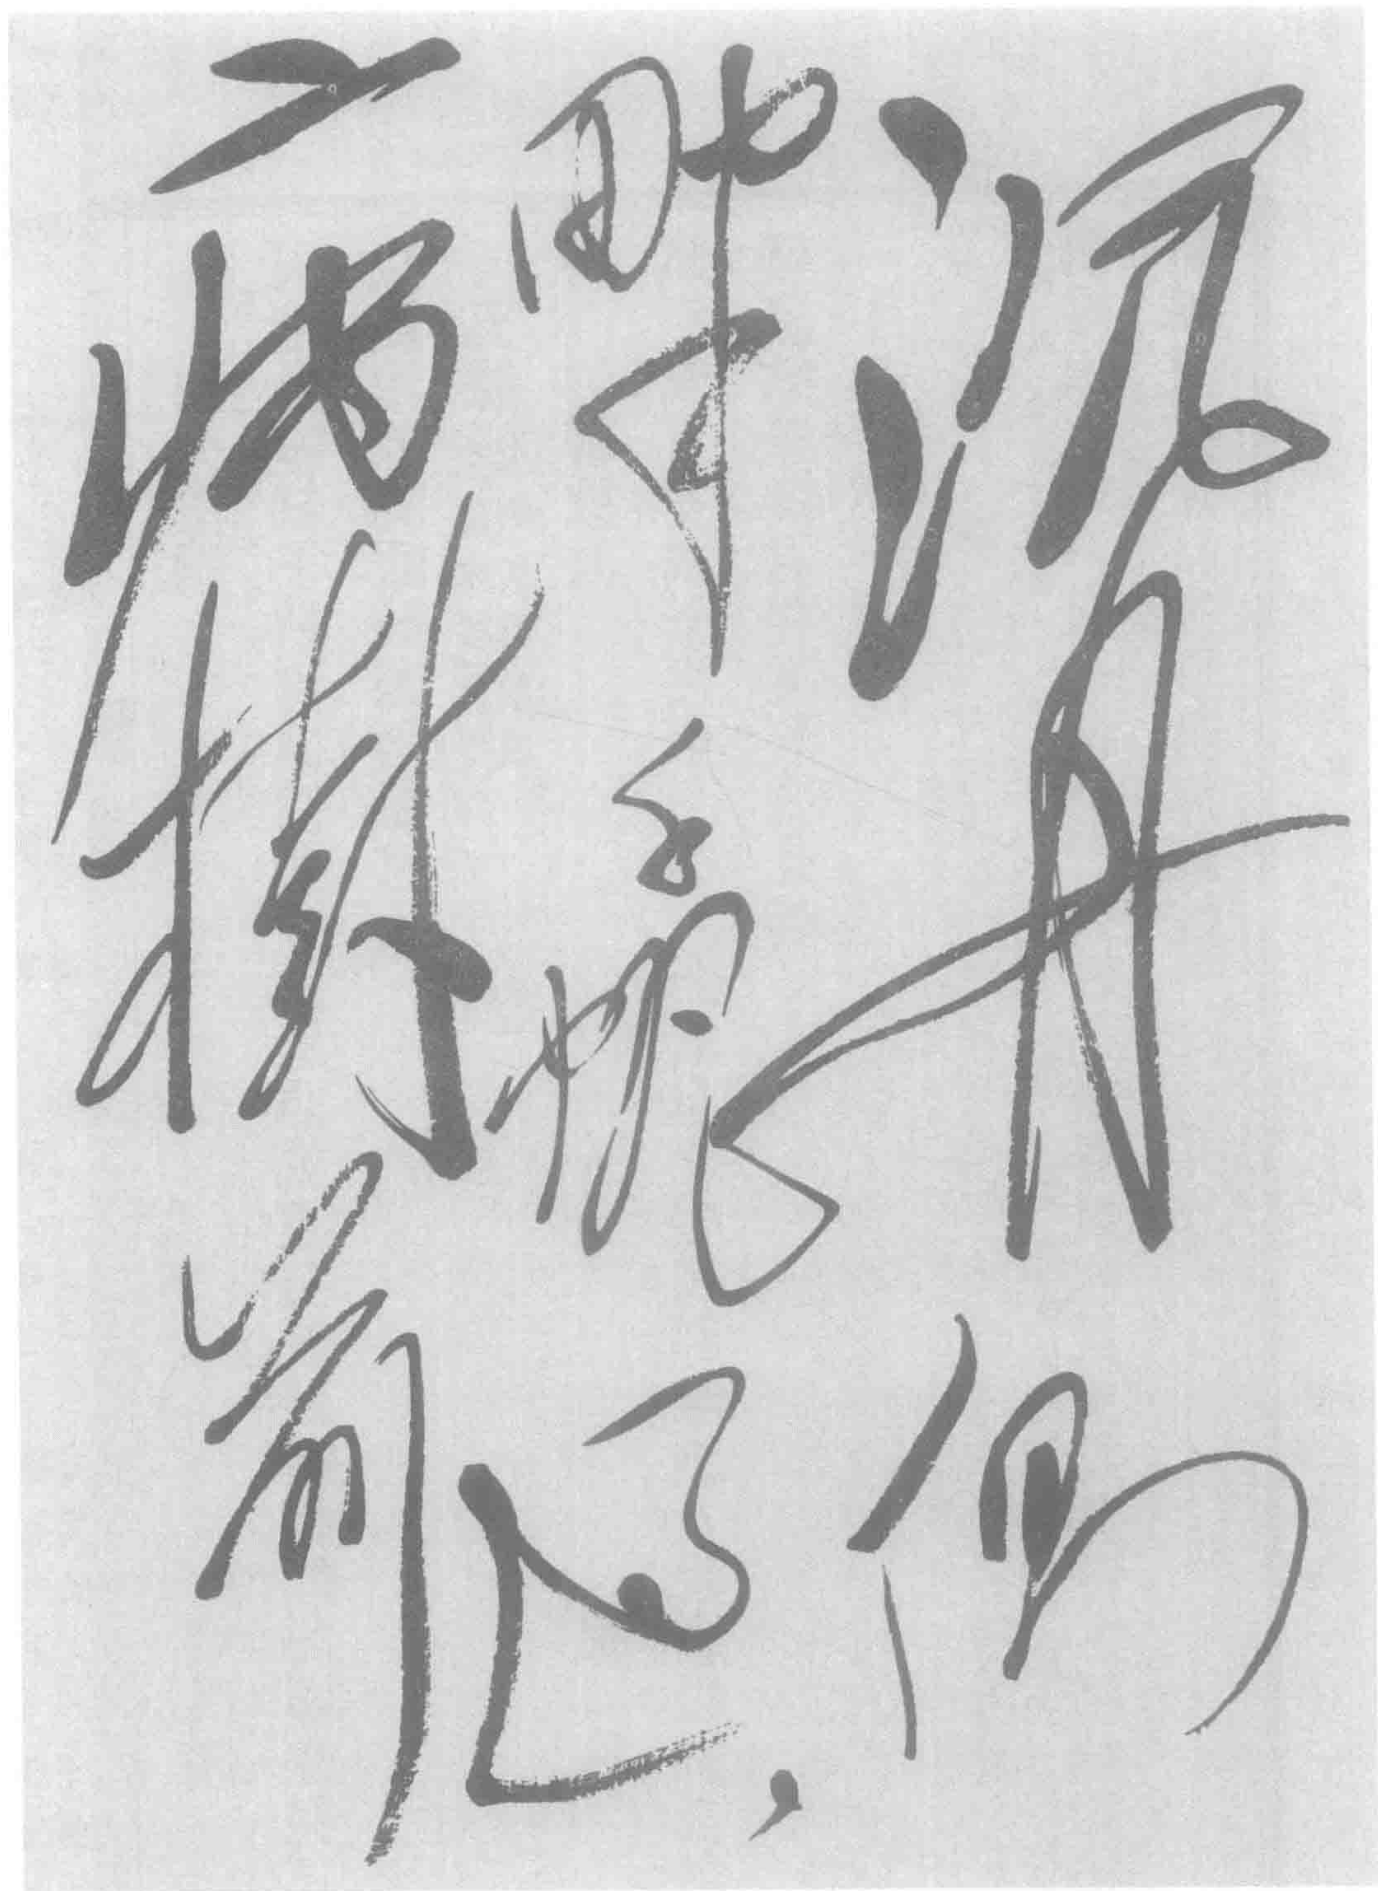 沉舟側
畔千帆過，
病樹前